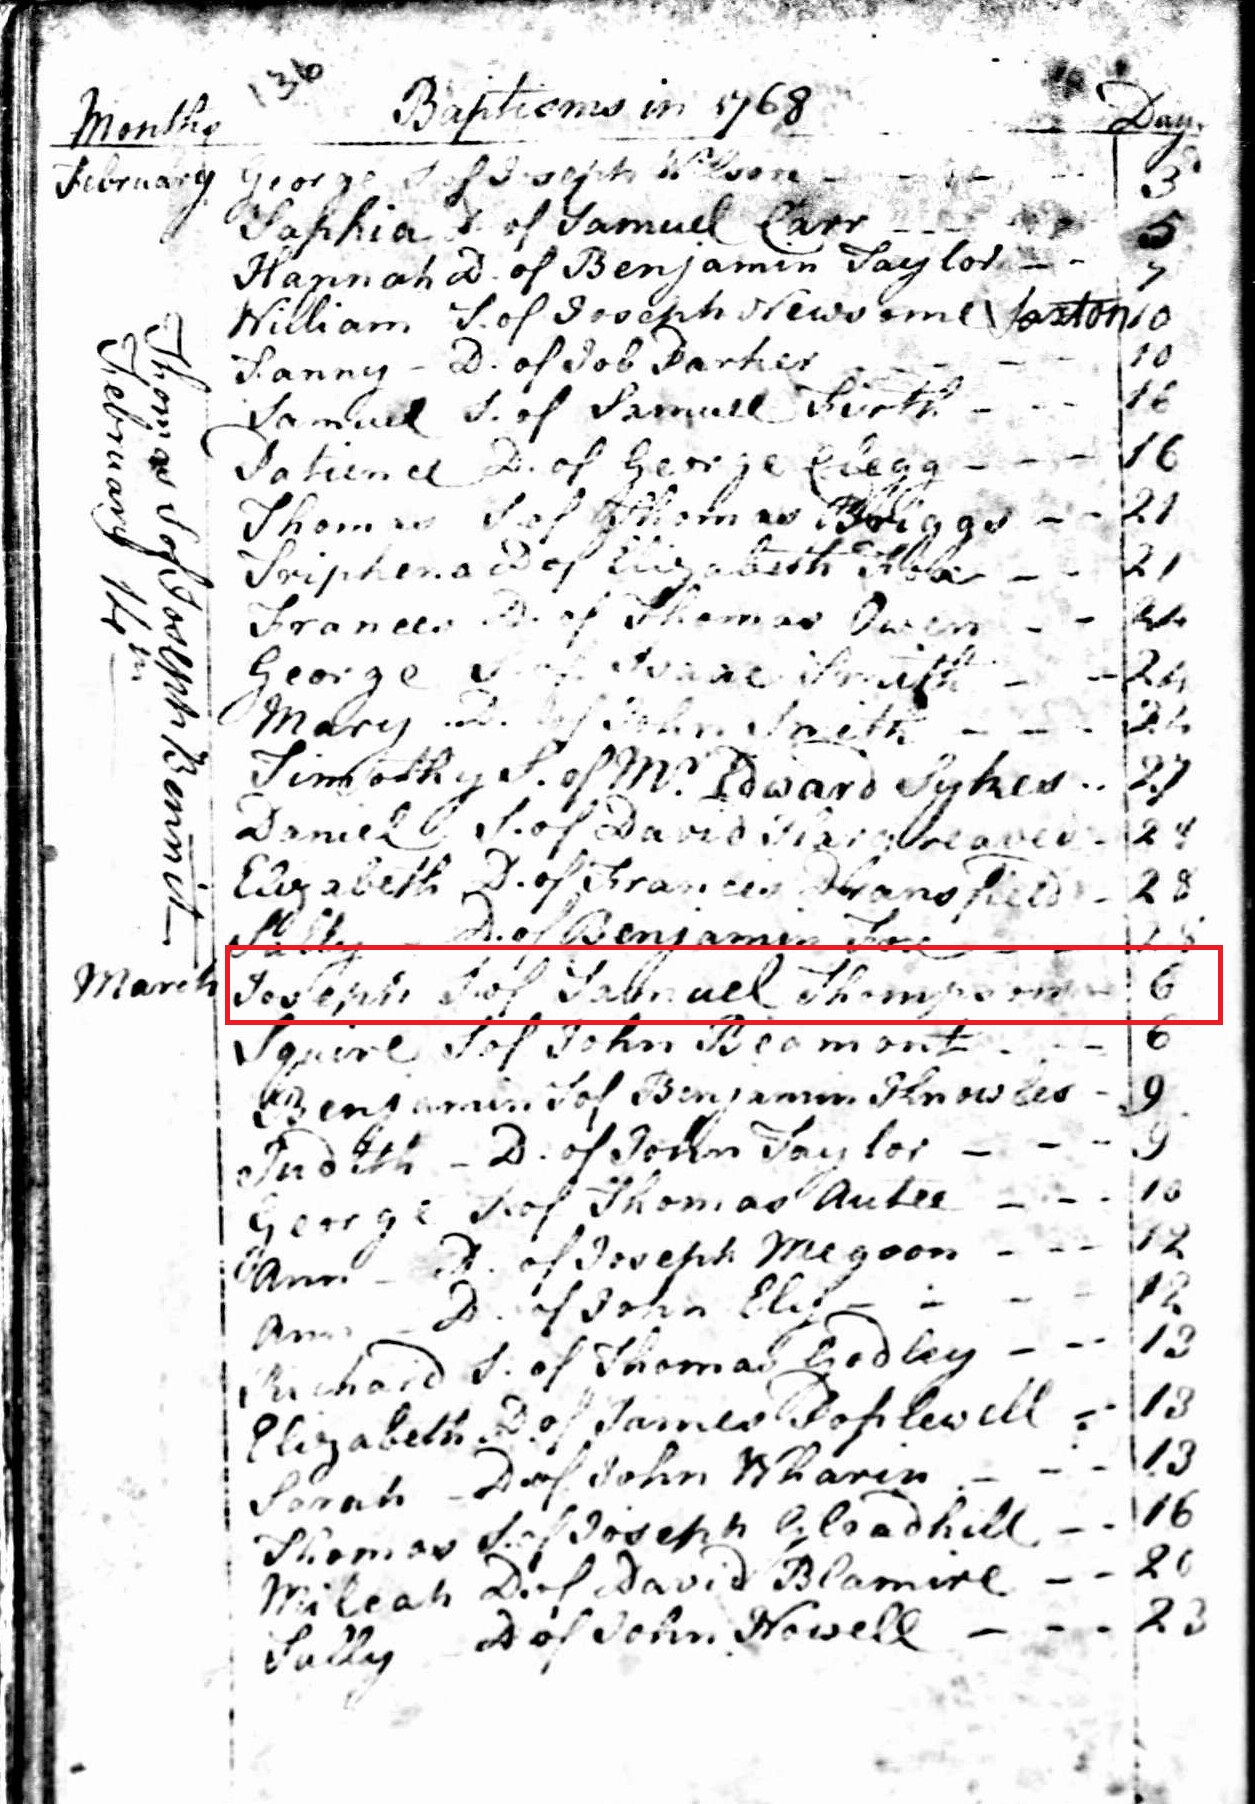 136
Baptisms in 1768
Months Days
February George S. of Joseph Wilson - - - - 3
Saphia D. of Samuel Carr - - - 5
Hannah D. of Benjamin Taylor - - 7
William S. of Joseph Newsome Saxton 10
Fanny - D. of Job Parker - - - - 10
Samuel S. of Samuel Firth - - - 16
Patience D. of George Clegg - - - 16
Thomas S. of Thomas Briggs - - 21
Triphena D of Elizabeth - - 21
Frances D. of Thomas Owen - - 24
George S. of Isaac Smith - - 24
Mary D. of John Smith - - - 24
Timothy S. of Mr. Edward Sykes .. 27
Daniel S. of David Hargreaves - 28
Elizabeth D. of Francis Dransfield - 28
Sally - D. of Benjamin Fox - - 28
March Joseph S. of Samuel Thompson - - 6
Squire S of John Beamont - - - 6
Benjamin S of Benjamin Knowles - 9
Judith - D. of John Taylor - - - 9
George S. of Thomas Autee - - - 10
Ann - D. of Joseph Megson - - - 12
Ann - D. of John Ely - - - - 12
Richard S. of Thomas Godley - - 13
Elizabeth D. of James Poplewell - - 13
Sarah - D. of John Wharin - - - 13
Thomas S. of Joseph Gleadhill - - 16
Mileah D. of David Blamire - - 20
Sally - D of John Howell - - - 23
Thomas S. of Joseph Bennit
February 14th